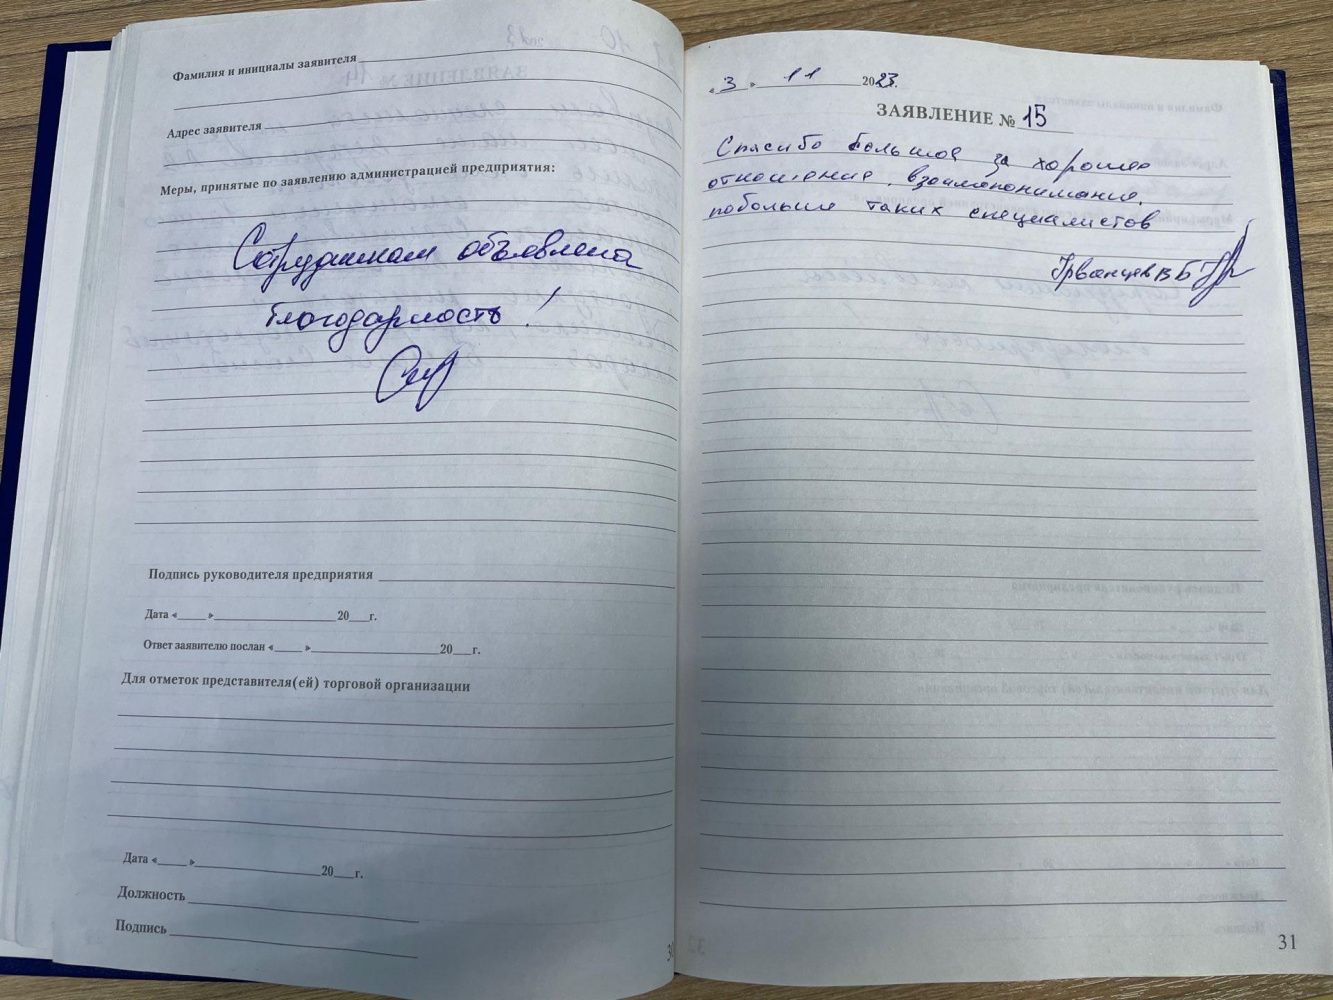 Фамилия и инициалы заявителя
Адрес заявителя
Меры, принятые по заявлению администрацией предприятия:
Сотрудникам объявлена
благодарность!
Подпись руководителя предприятия
Дата «___» ___ 20__г.
Ответ заявителю послан «___» ___ 20__г.
Для отметок представителя(ей) торговой организации
Дата «___» ___ 20__г.
Должность
Подпись
30
«3» 11 2023г.
ЗАЯВЛЕНИЕ № 15
Спасибо большое за хорошее
отношение, взаимопонимание.
побольше таких специалистов
Урванцев В Б
31